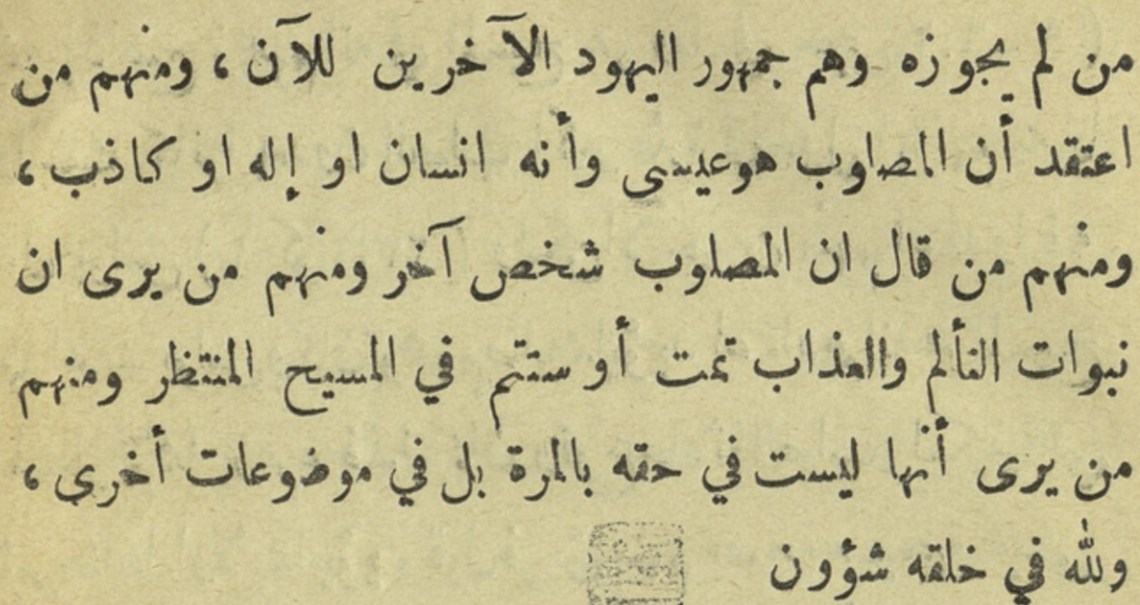 من لم يجوزه وهم جمهور اليهود الآخرين للآن ، ومنهم من
اعتقد أن المصلوب هو عيسى وأنه انسان او إله او كاذب ،
ومنهم من قال ان المصلوب شخص آخر ومنهم من يرى ان
نبوات التألم والعذاب تمت أو ستتم في المسيح المنتظر ومنهم
من يرى أنها ليست في حقه بالمرة بل في موضوعات أخرى ،
ولله في خلقه شؤون